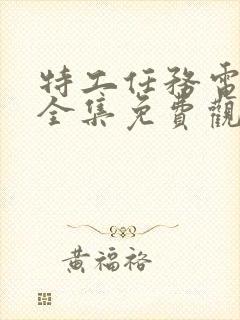 特工任務電
全集免費觀
黃福裕